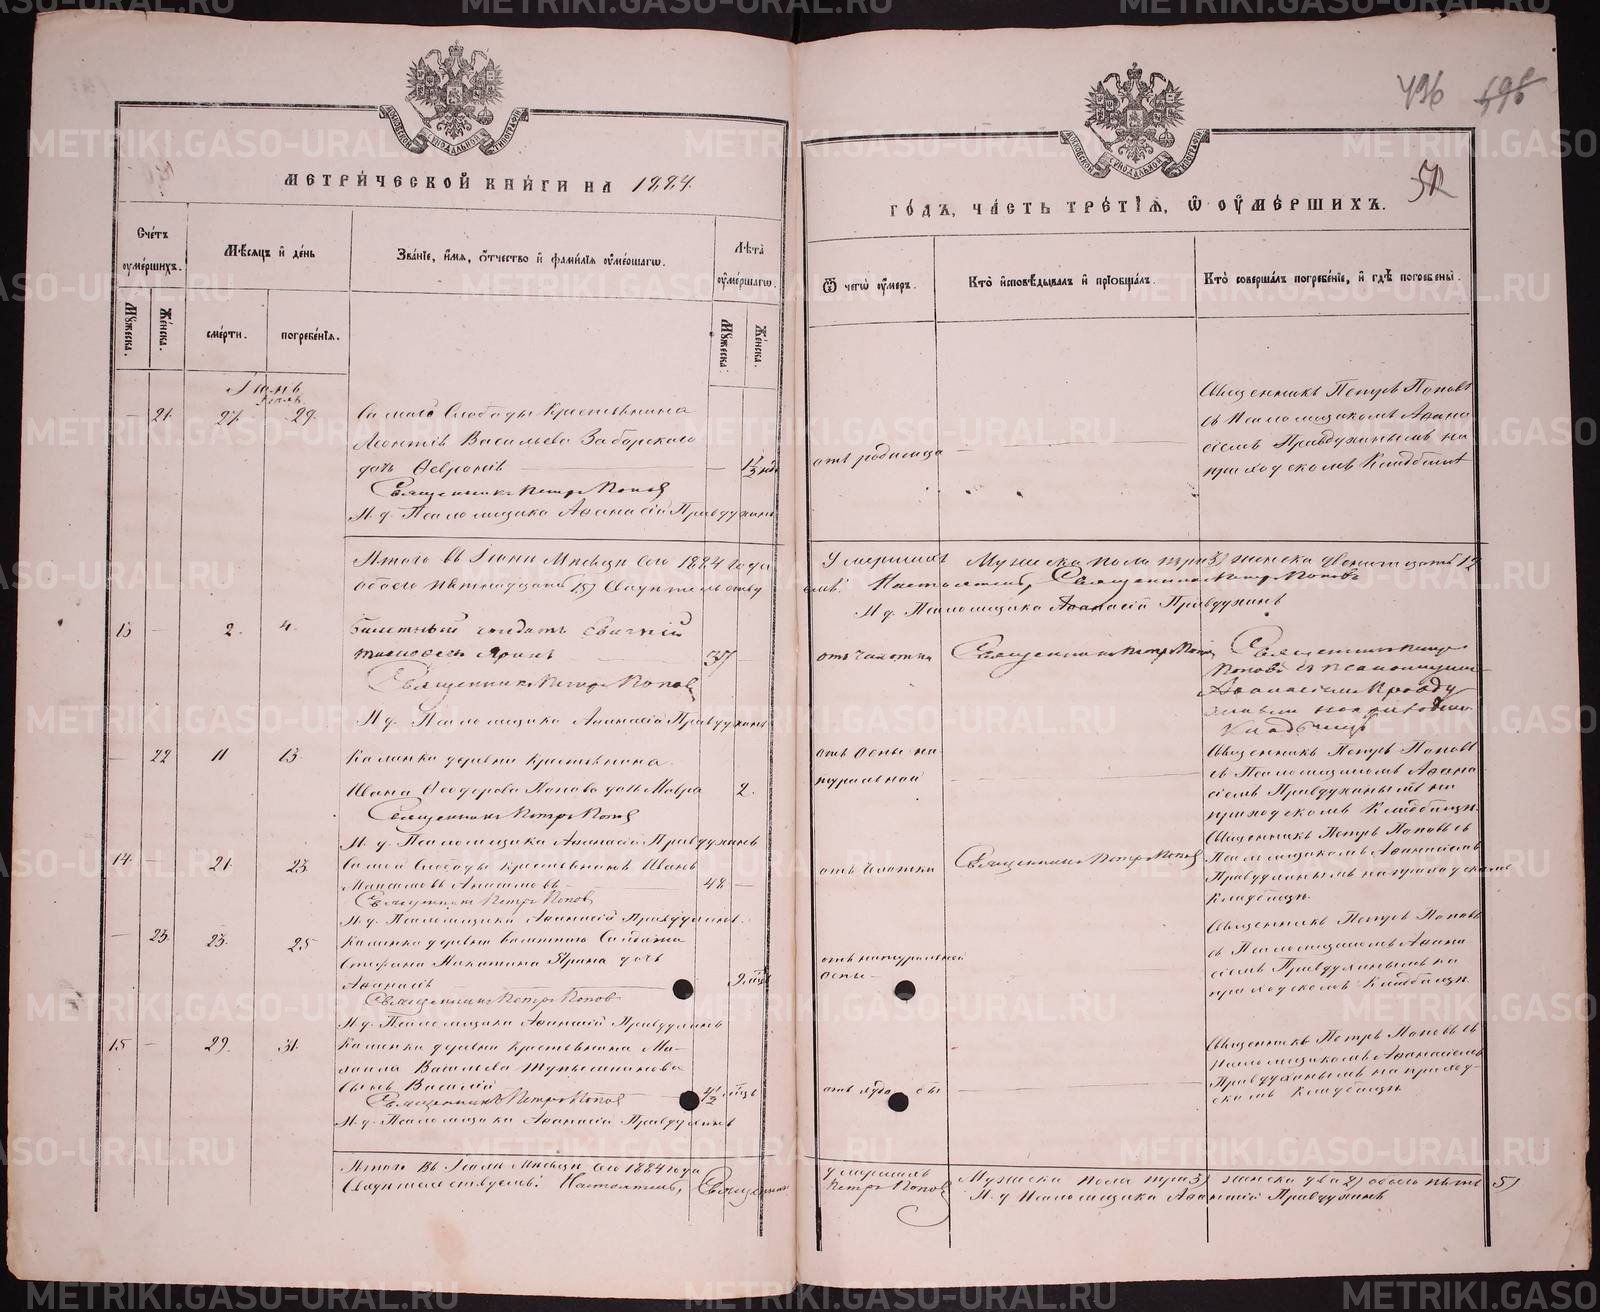 МЕТРИЧЕСКОЙ КНИГИ НА 1884.
Счетъ оумершихъ.
Мѣсяцъ и день
Званіе, имя, отчество и фамилія оумершагω.
Лѣта оумершагω.
Мужеска.
Женска.
смерти.
погребенія.
Мужеска.
Женска.
— 21. 27. 29.
Самой Слободы крестьянина
Леонтія Васильева Заборскаго
дочь Феврониѣ — 1½
Священникъ Петръ Поповъ
И. д. Псаломщика Аѳанасій Правдухинъ
Итого въ Іюни Мѣсяцѣ сего 1884 года
обоего пятнадцать 15)
13 — 2. 4.
Билетный солдатъ
Яринъ — 37 —
Священникъ Петръ Поповъ
И. д. Псаломщика Аѳанасій Правдухинъ
— 22 11 13.
Калинка деревни крестьянина
Ивана Ѳеодорова Попова дочь Мавра 2.
Священникъ Петръ Поповъ
И. д. Псаломщика Аѳанасій Правдухинъ
14. — 21. 23.
Самой Слободы крестьянинъ Иванъ
48 —
Священникъ Петръ Поповъ
И. д. Псаломщика Аѳанасій Правдухинъ.
— 23. 23. 25
Калинка деревни солдата
Стефана Никитина Ярина дочь
9
Священникъ Петръ Поповъ
И. д. Псаломщика Аѳанасій Правдухинъ
15 — 29. 31.
Калинка деревни крестьянина Ми-
хаила Васильева
сынъ Василій
Священникъ Петръ Поповъ
И. д. Псаломщика Аѳанасій Правдухинъ
Итого въ Іюли Мѣсяцѣ сего 1884 года
Настоятель, Священникъ
496 598
512
ГОДЪ, ЧАСТЬ ТРЕТІѦ, Ѡ ОУМЕРШИХЪ.
Ѿ чегω оумеръ.
Кто исповѣдывалъ и пріобщалъ.
Кто совершалъ погребеніе, и гдѣ погребены.
Священникъ Петръ Поповъ
съ Псаломщикомъ Аѳана
сіемъ Правдухинымъ на
приходскомъ Кладбищѣ
отъ родимца
Умершихъ Мужеска пола три 3) женска двенадцать 12
Настоятель, Священникъ Петръ Поповъ
И. д. Псаломщика Аѳанасій Правдухинъ
отъ чахотки
Священникъ Петръ Поповъ
Священникъ Петръ
Поповъ съ псаломщикомъ
Аѳанасіемъ Правду
хинымъ на приходскомъ
Кладбищѣ
отъ оспы на-
туральной
Священникъ Петръ Поповъ
съ Псаломщикомъ Аѳана
сіемъ Правдухинымъ на
приходскомъ Кладбищѣ.
отъ чахотки
Священникъ Петръ Поповъ
Священникъ Петръ Поповъ съ
Псаломщикомъ Аѳанасіемъ
Правдухинымъ на приходскомъ
Кладбищѣ.
отъ натуральной
оспы —
Священникъ Петръ Поповъ
съ Псаломщикомъ Аѳана
сіемъ Правдухинымъ на
приходскомъ Кладбищѣ.
Священникъ Петръ Поповъ съ
Псаломщикомъ Аѳанасіемъ
Правдухинымъ на приход-
скомъ Кладбищѣ.
умершихъ Мужеска пола три 3) женска два 2) обоего пять 5)
Петръ Поповъ И. д. Псаломщика Аѳанасій Правдухинъ
METRIKI.GASO-URAL.RU